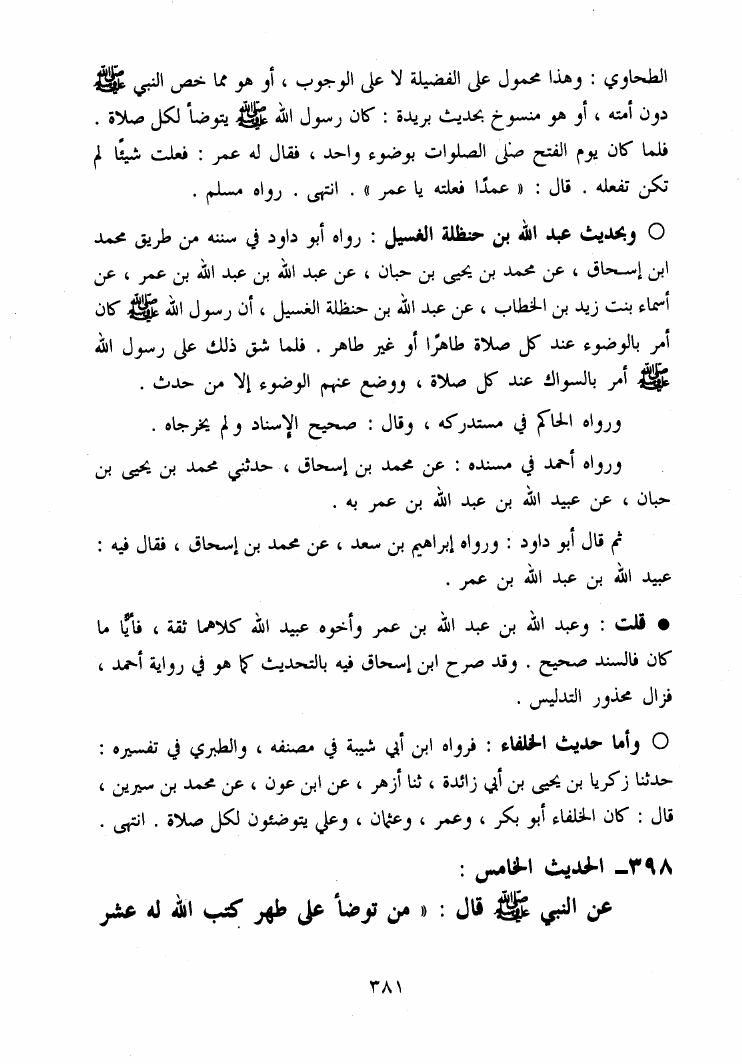 الطحاوي : وهذا محمول على الفضيلة لا على الوجوب ، أو هو مما خص النبي ﷺ
دون أمته ، أو هو منسوخ بحديث بريدة : كان رسول الله ﷺ يتوضأ لكل صلاة .
فلما كان يوم الفتح صلى الصلوات بوضوء واحد ، فقال له عمر : فعلت شيئًا لم
تكن تفعله . قال : « عمدًا فعلته يا عمر » . انتهى . رواه مسلم .
○ وبحديث عبد الله بن حنظلة الغسيل : رواه أبو داود في سننه من طريق محمد
ابن إسحاق ، عن محمد بن يحيى بن حبان ، عن عبد الله بن عبد الله بن عمر ، عن
أسماء بنت زيد بن الخطاب ، عن عبد الله بن حنظلة الغسيل ، أن رسول الله ﷺ كان
أمر بالوضوء عند كل صلاة طاهرًا أو غير طاهر . فلما شق ذلك على رسول الله
ﷺ أمر بالسواك عند كل صلاة ، ووضع عنهم الوضوء إلا من حدث .
ورواه الحاكم في مستدركه ، وقال : صحيح الإسناد ولم يخرجاه .
ورواه أحمد في مسنده : عن محمد بن إسحاق ، حدثني محمد بن يحيى بن
حبان ، عن عبيد الله بن عبد الله بن عمر به .
ثم قال أبو داود : ورواه إبراهيم بن سعد ، عن محمد بن إسحاق ، فقال فيه :
عبيد الله بن عبد الله بن عمر .
● قلت : وعبد الله بن عبد الله بن عمر وأخوه عبيد الله كلاهما ثقة ، فأيًّا ما
كان فالسند صحيح . وقد صرح ابن إسحاق فيه بالتحديث كما هو في رواية أحمد ،
فزال محذور التدليس .
○ وأما حديث الخلفاء : فرواه ابن أبي شيبة في مصنفه ، والطبري في تفسيره :
حدثنا زكريا بن يحيى بن أبي زائدة ، ثنا أزهر ، عن ابن عون ، عن محمد بن سيرين ،
قال : كان الخلفاء أبو بكر ، وعمر ، وعثمان ، وعلي يتوضئون لكل صلاة . انتهى .
٣٩٨ـ الحديث الخامس :
عن النبي ﷺ قال : « من توضأ على طهر كتب الله له عشر
٣٨١